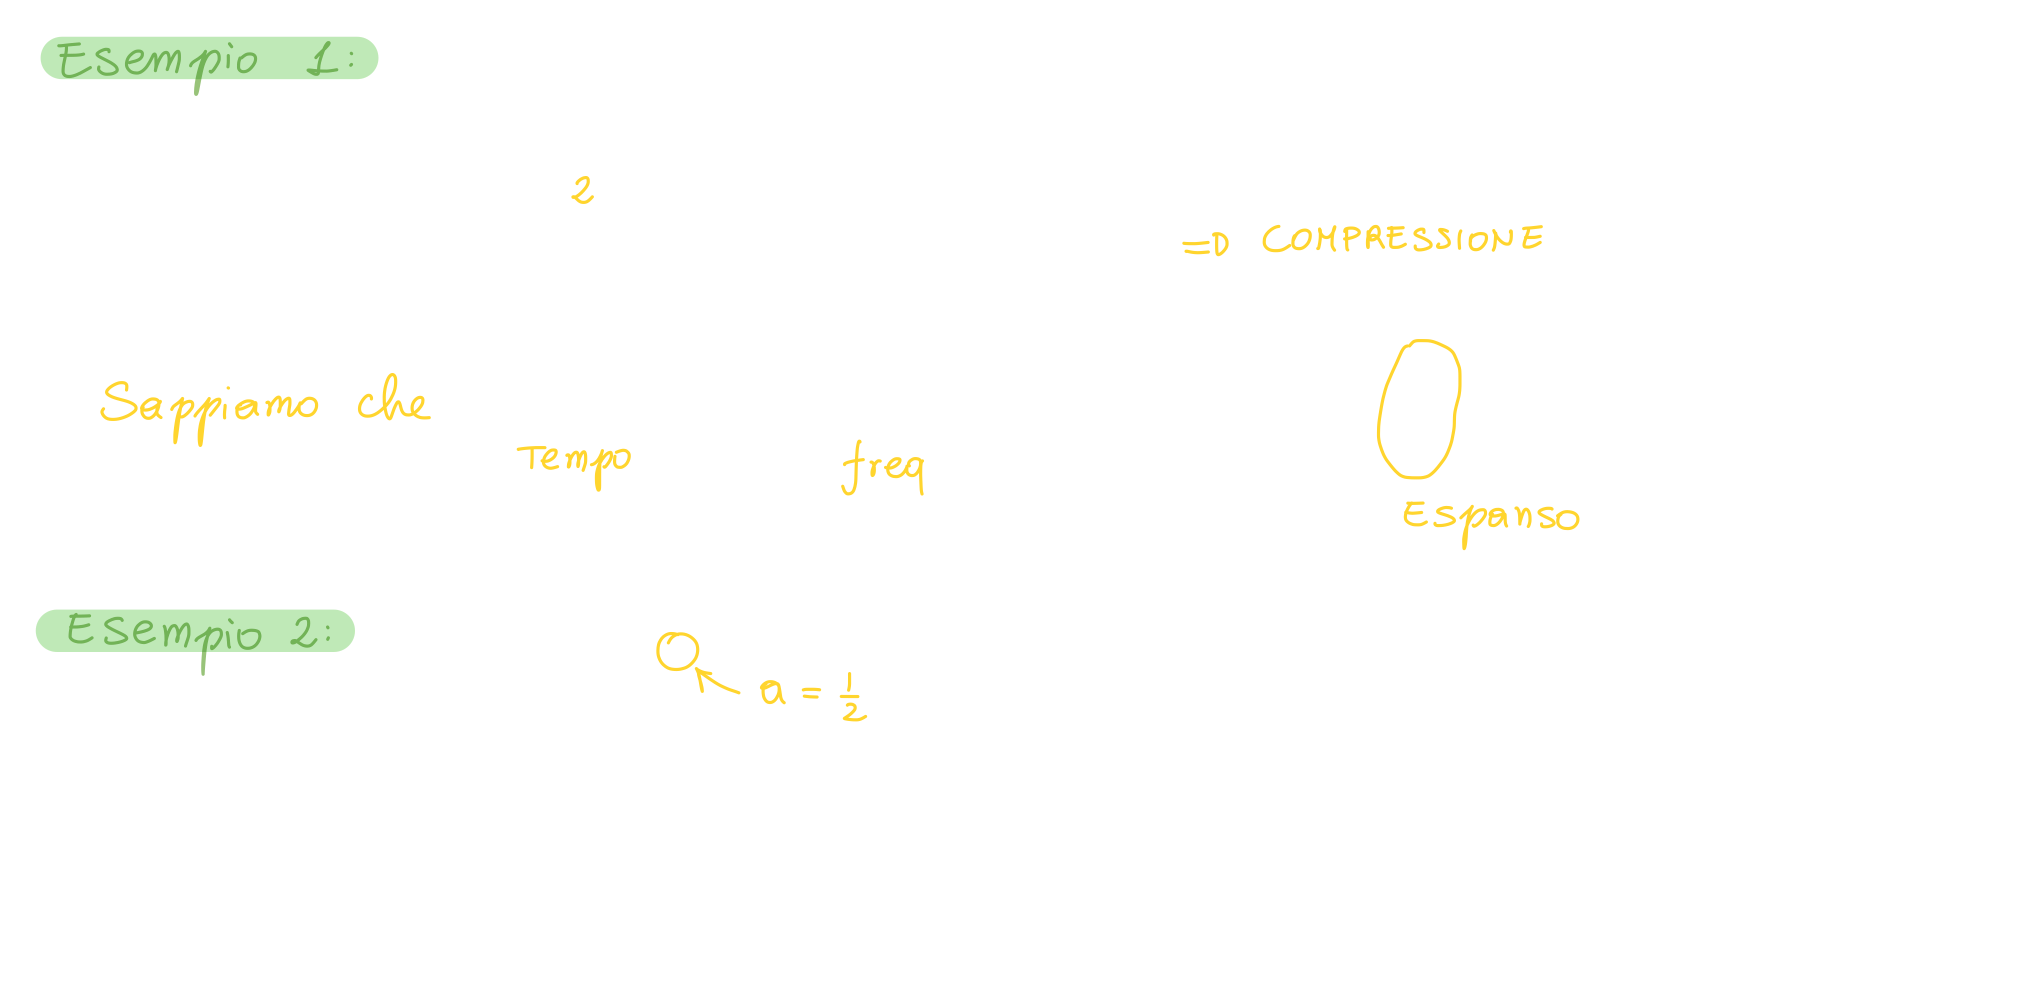 Esempio 1:
2
=D COMPRESSIONE
Sappiamo che
Tempo freq
Espanso
Esempio 2:
a = 1/2